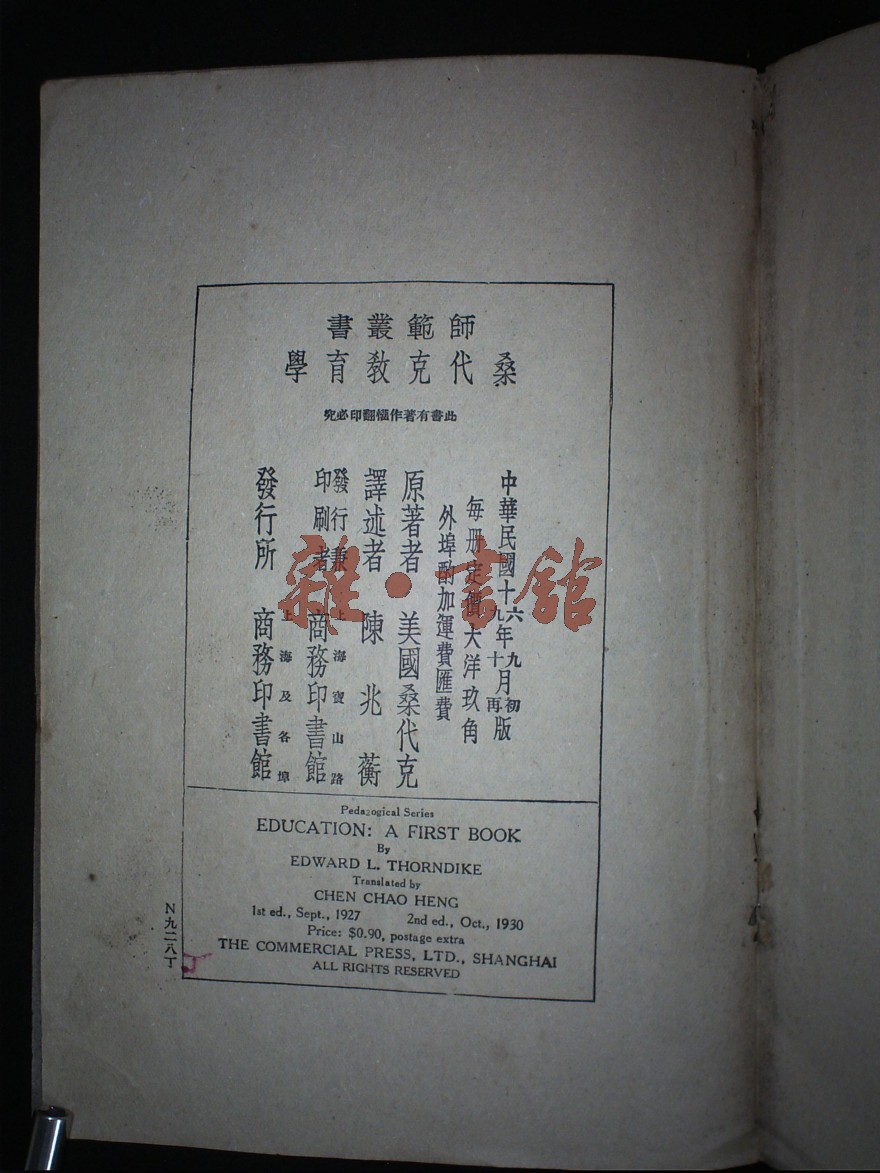 師範叢書
桑代克教育學
此書有著作權翻印必究
中華民國十六年九月初版
十九年十月再版
每册定價大洋玖角
外埠酌加運費匯費
原著者 美國桑代克
譯述者 陳兆蘅
發行兼印刷者 上海寶山路 商務印書館
發行所 上海及各埠 商務印書館
Pedagogical Series
EDUCATION: A FIRST BOOK
By
EDWARD L. THORNDIKE
Translated by
CHEN CHAO HENG
1st ed., Sept., 1927 2nd ed., Oct., 1930
Price: $0.90, postage extra
THE COMMERCIAL PRESS, LTD., SHANGHAI
ALL RIGHTS RESERVED
N九二八丁
雜·書館